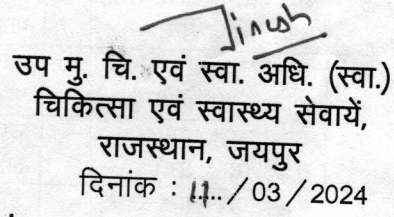 उप मु. चि. एवं स्वा. अधि. (स्वा.)
चिकित्सा एवं स्वास्थ्य सेवायें,
राजस्थान, जयपुर
दिनांक : 11... / 03 / 2024